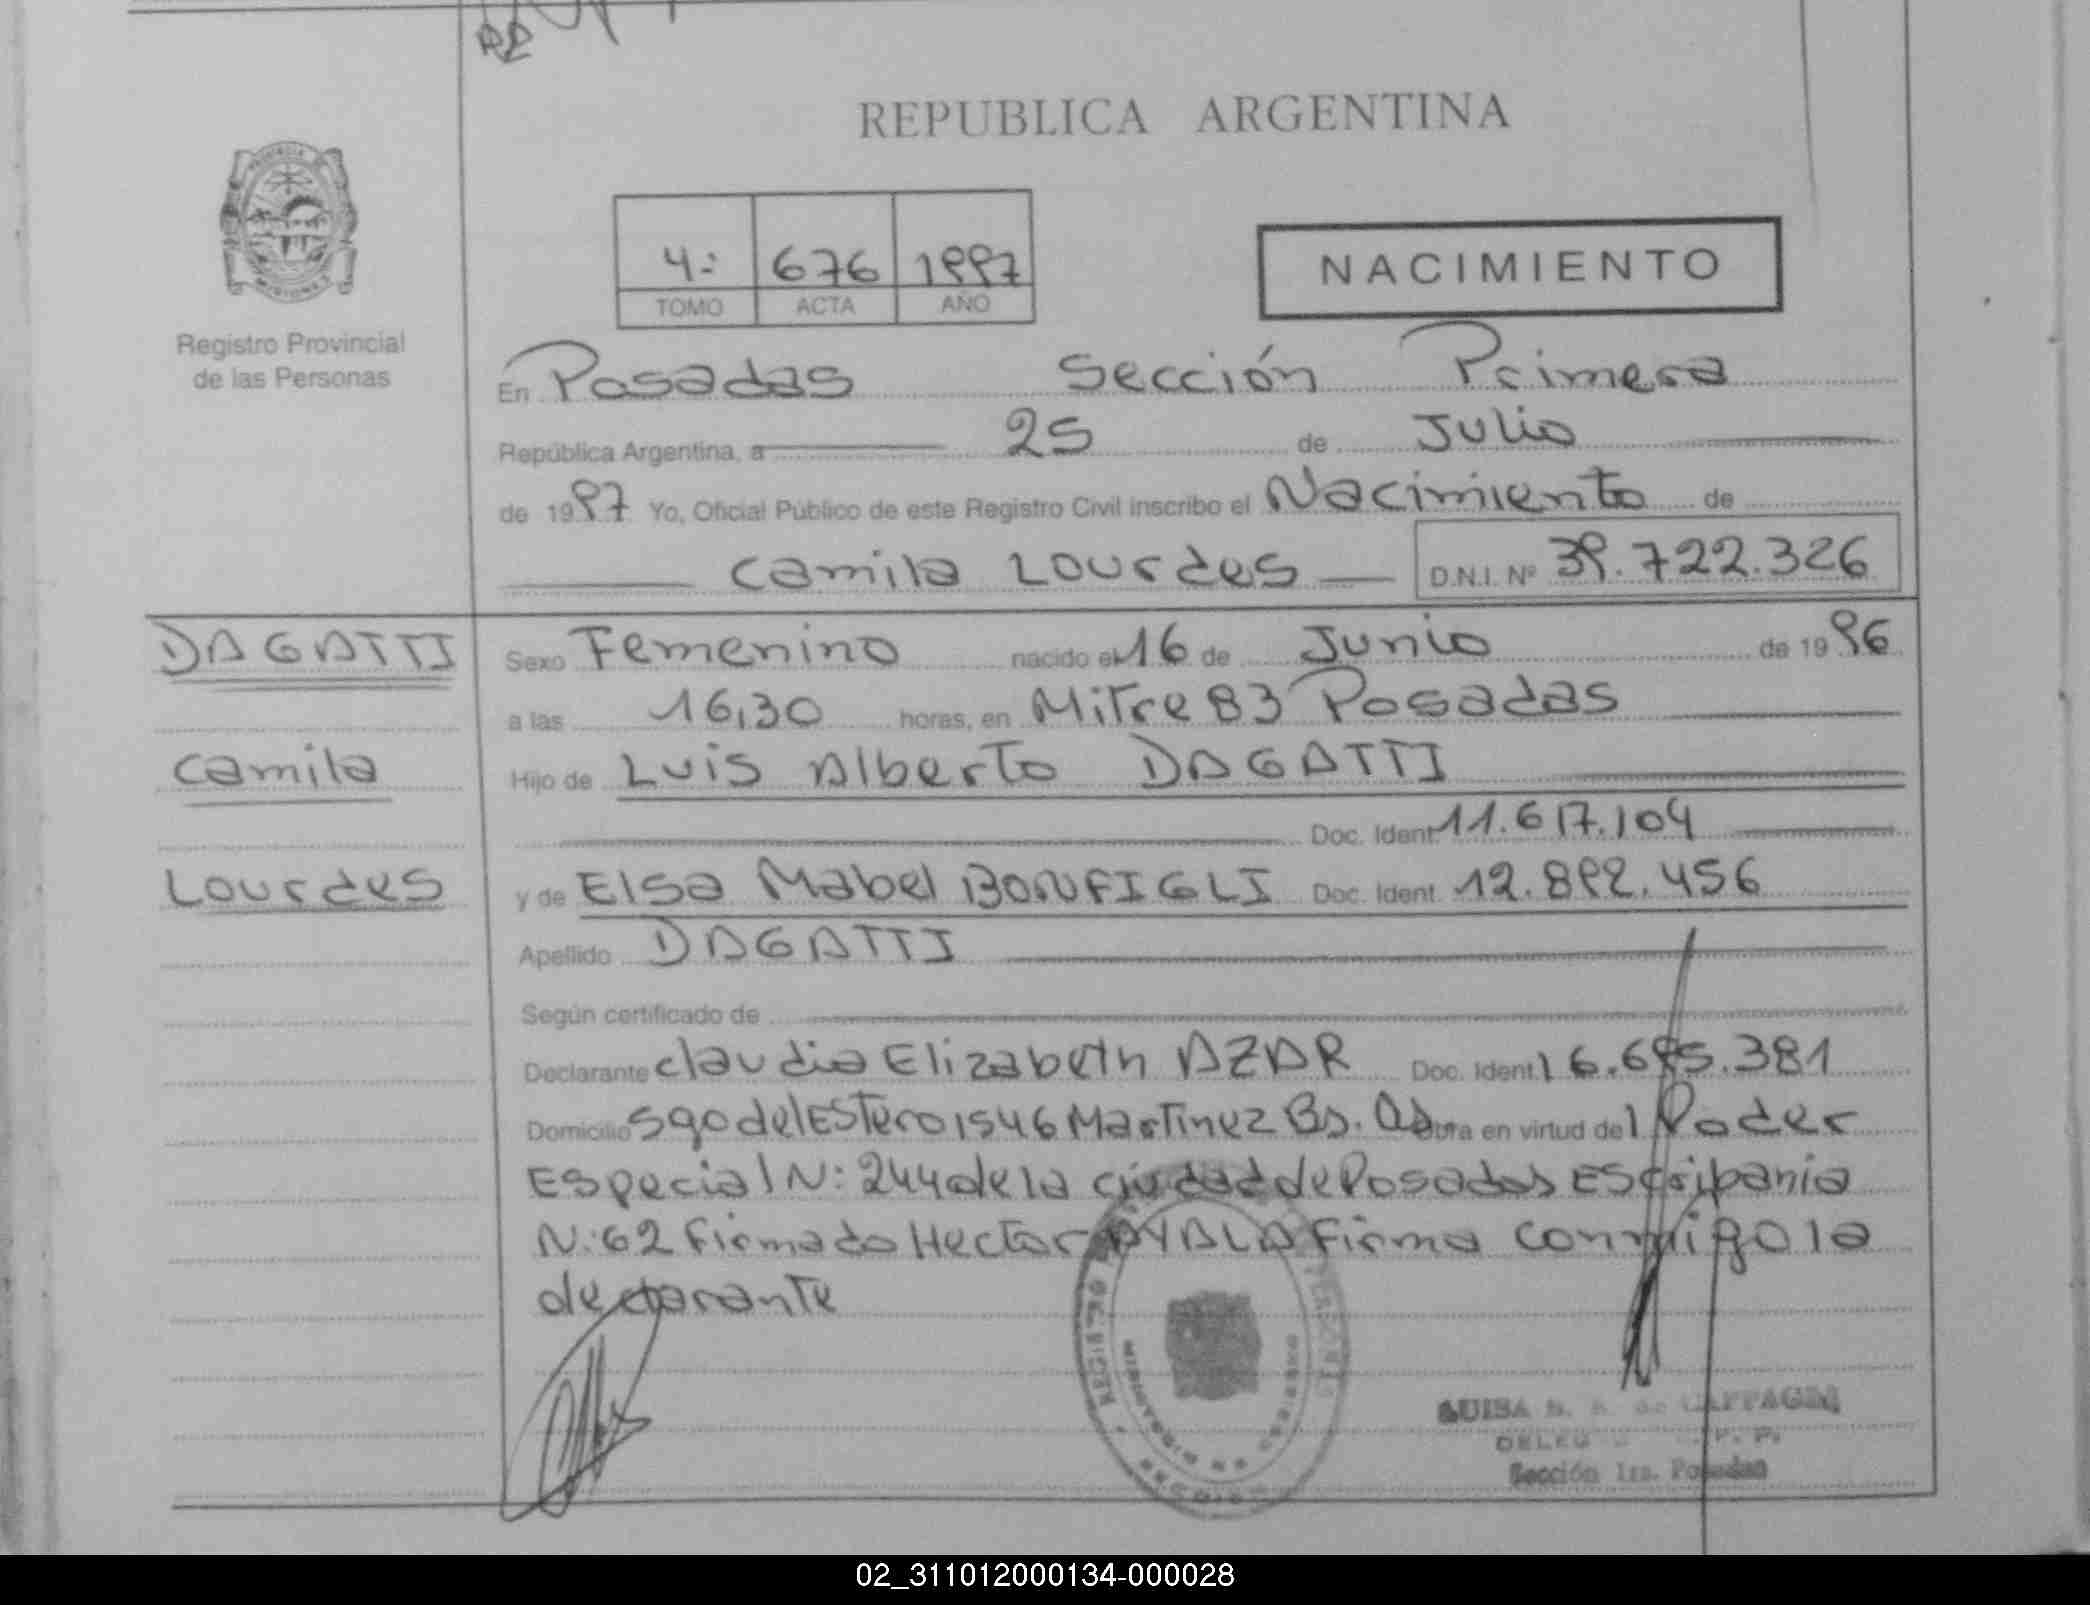 REPUBLICA ARGENTINA
PROVINCIA DE
MISIONES
Registro Provincial
de las Personas
4:
676
1997
TOMO
ACTA
AÑO
NACIMIENTO
En Posadas Sección Primera
República Argentina, a 25 de Julio
de 1997 Yo, Oficial Público de este Registro Civil inscribo el Nacimiento de
Camila Lourdes D.N.I. Nº 39.722.326
DAGATTI
Camila
Lourdes
Sexo Femenino nacido el 16 de Junio de 1996
a las 16,30 horas, en Mitre 83 Posadas
Hijo de Luis Alberto DAGATTI
Doc. Ident. 11.617.104
y de Elsa Mabel BONFIGLI Doc. Ident. 12.892.456
Apellido DAGATTI
Según certificado de
Declarante Claudia Elizabeth AZAR Doc. Ident. 16.695.381
Domicilio Sgo del Estero 1546 Martinez Bs. As en virtud del Poder
Especial N: 244 de la ciudad de Posadas Escribania
N: 62 firmado Hector AYALA firma conmigo la
declarante
LUISA
Sección 1ra. Posadas
02_311012000134-000028